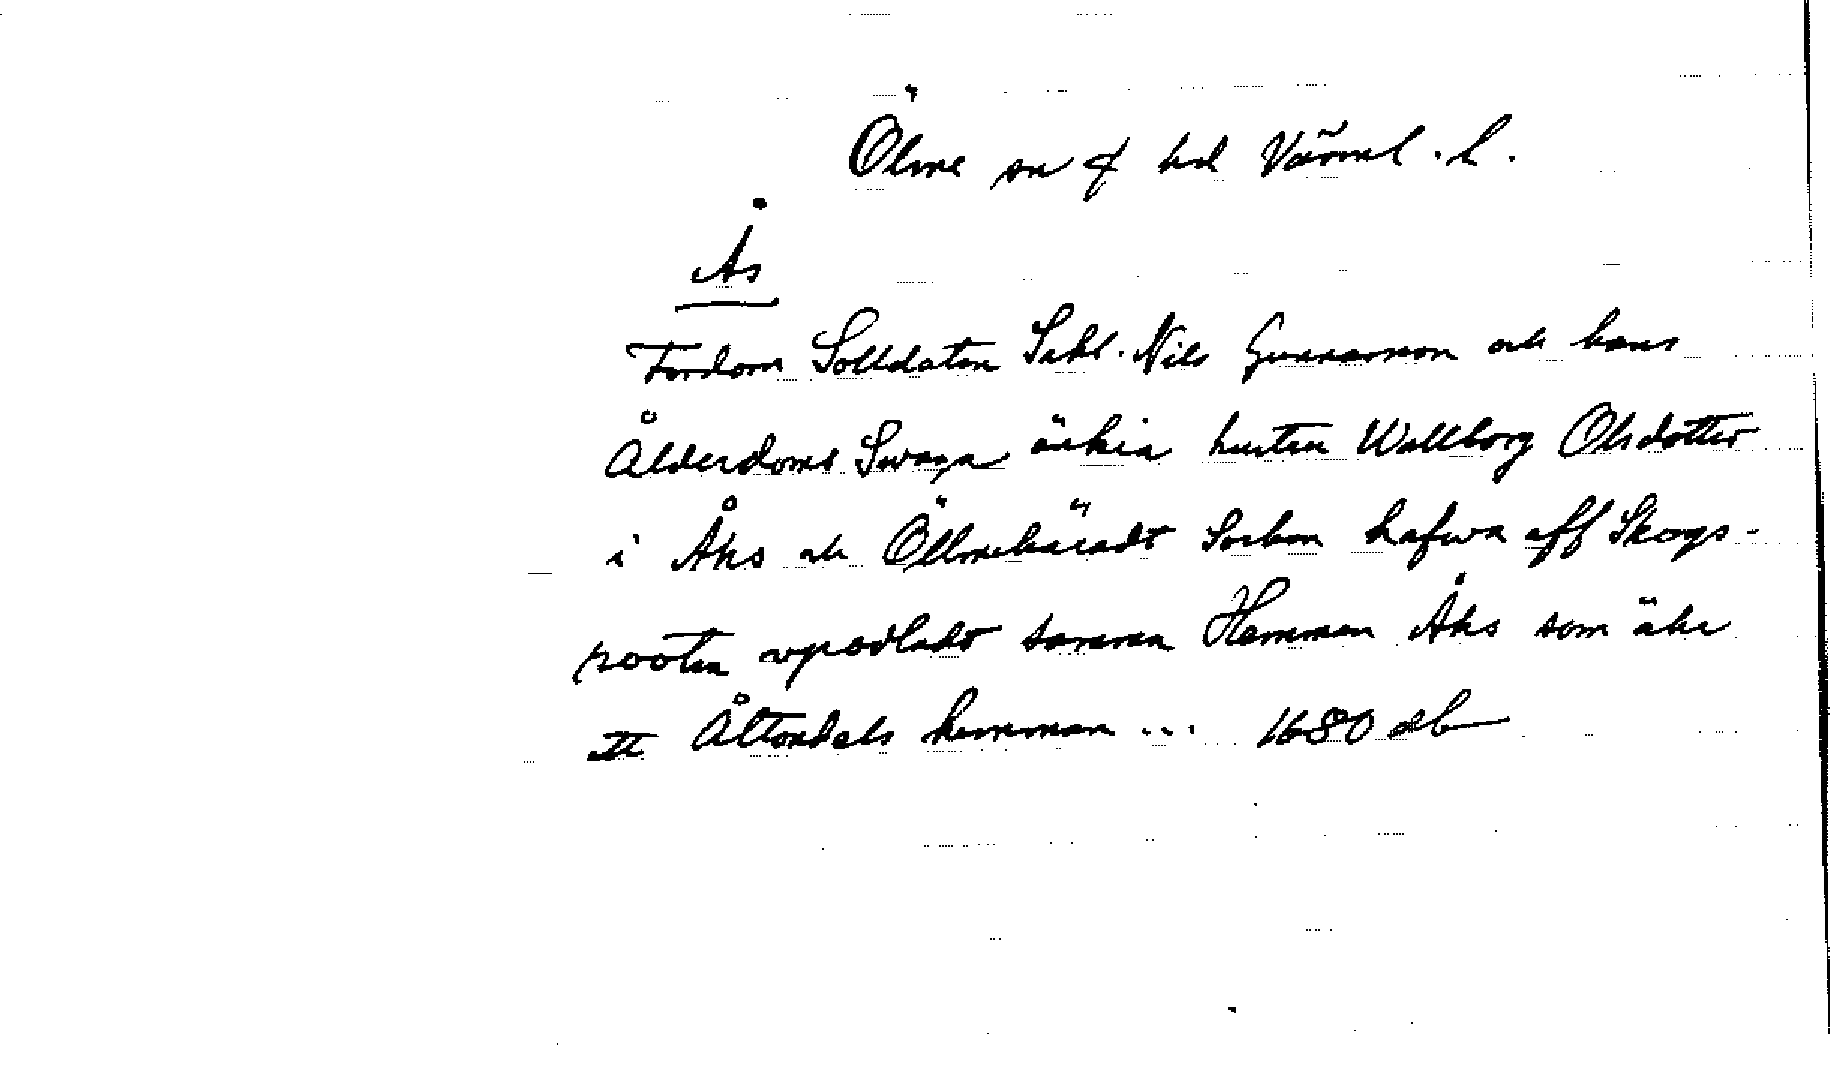 Ölme sn & hd Värml. l.
Ås
Fordom Solldaten Sahl. Nils Gunnarson och hans
Ålderdoms Swaga änkia hustru Wallborg Olsdotter
i Åhs och Öllmehäradt Sorhon hafwa aff Skogs-
rooten vpodladt samma Hemman Åhs som ähr
ett Åttondels hemman ... 1680 db